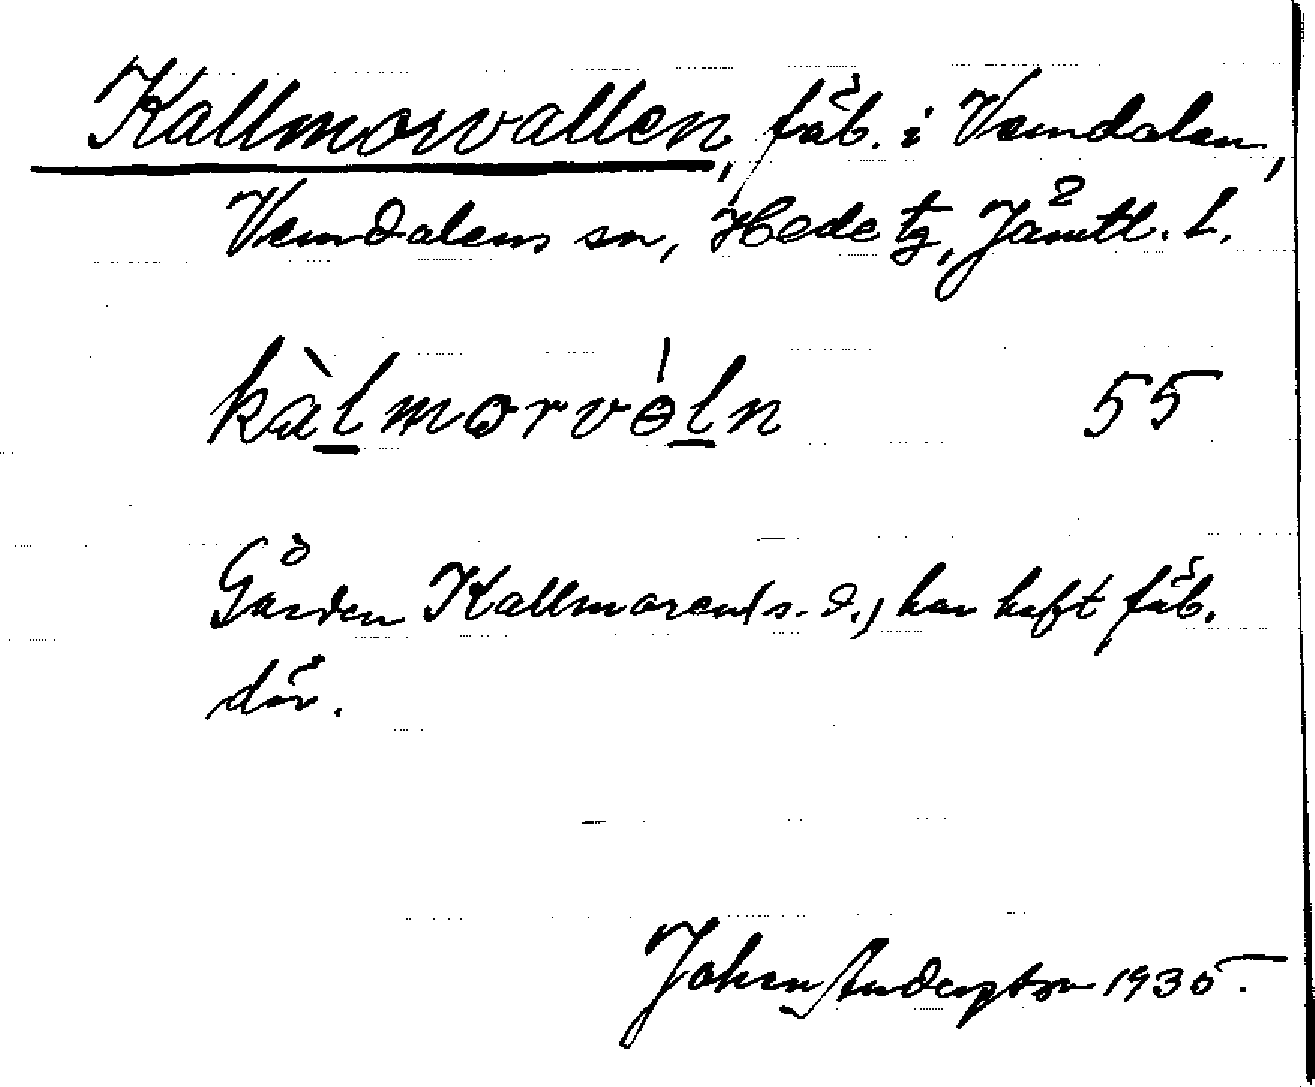 Kallmorvallen, fäb. i Vemdalen,
Vemdalens sn, Hede tg, Jämtl. l.
kàl̲morvɵ̀l̲n 55
Gården Kallmoren (s. d.) har haft fäb.
där.
Johan Anderssson 1935.